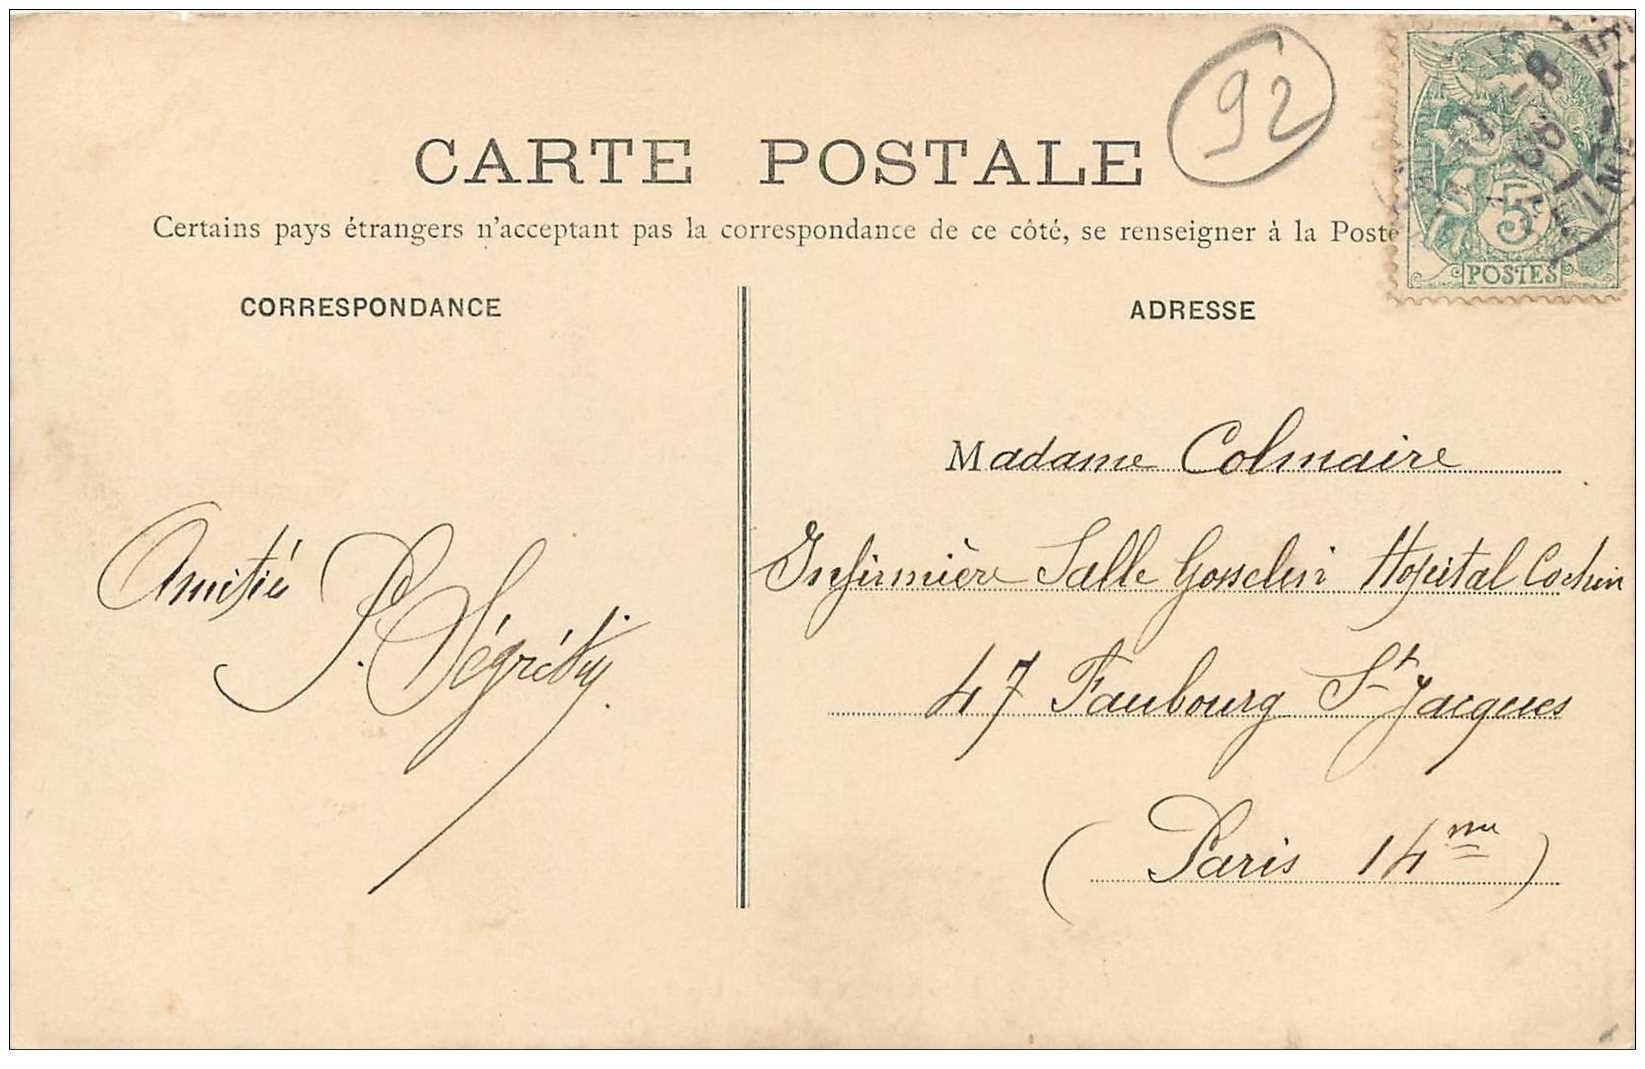 92
CARTE POSTALE
Certains pays étrangers n'acceptant pas la correspondance de ce côté, se renseigner à la Poste
5
POSTES
CORRESPONDANCE
Amitiés
P. Ségrétin
ADRESSE
Madame Colmaire
Infirmière Salle Gosselin Hopital Cochin
47 Faubourg St Jacques
(Paris 14me)